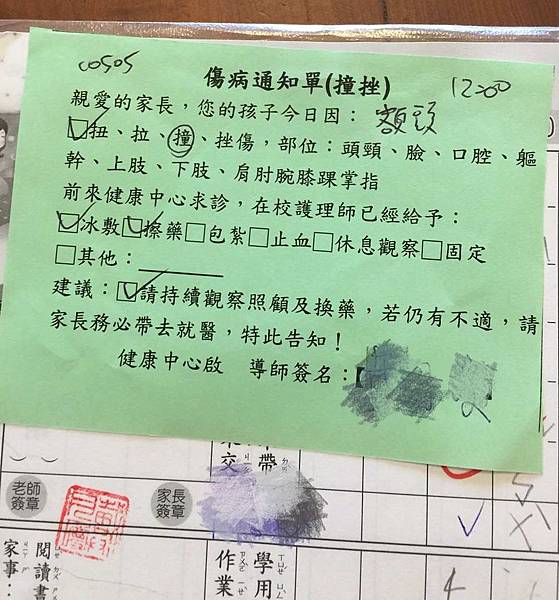 傷病通知單(撞挫)
12:00
親愛的家長，您的孩子今日因：額頭
☑扭、拉、撞、挫傷，部位：頭頸、臉、口腔、軀
幹、上肢、下肢、肩肘腕膝踝掌指
前來健康中心求診，在校護理師已經給予：
☑冰敷☑擦藥□包紮□止血□休息觀察□固定
□其他：
建議：☑請持續觀察照顧及換藥，若仍有不適，請
家長務必帶去就醫，特此告知！
健康中心啟 導師簽名：
交 帶
老師簽章
家長簽章
閱讀書
家事：
學用
作業